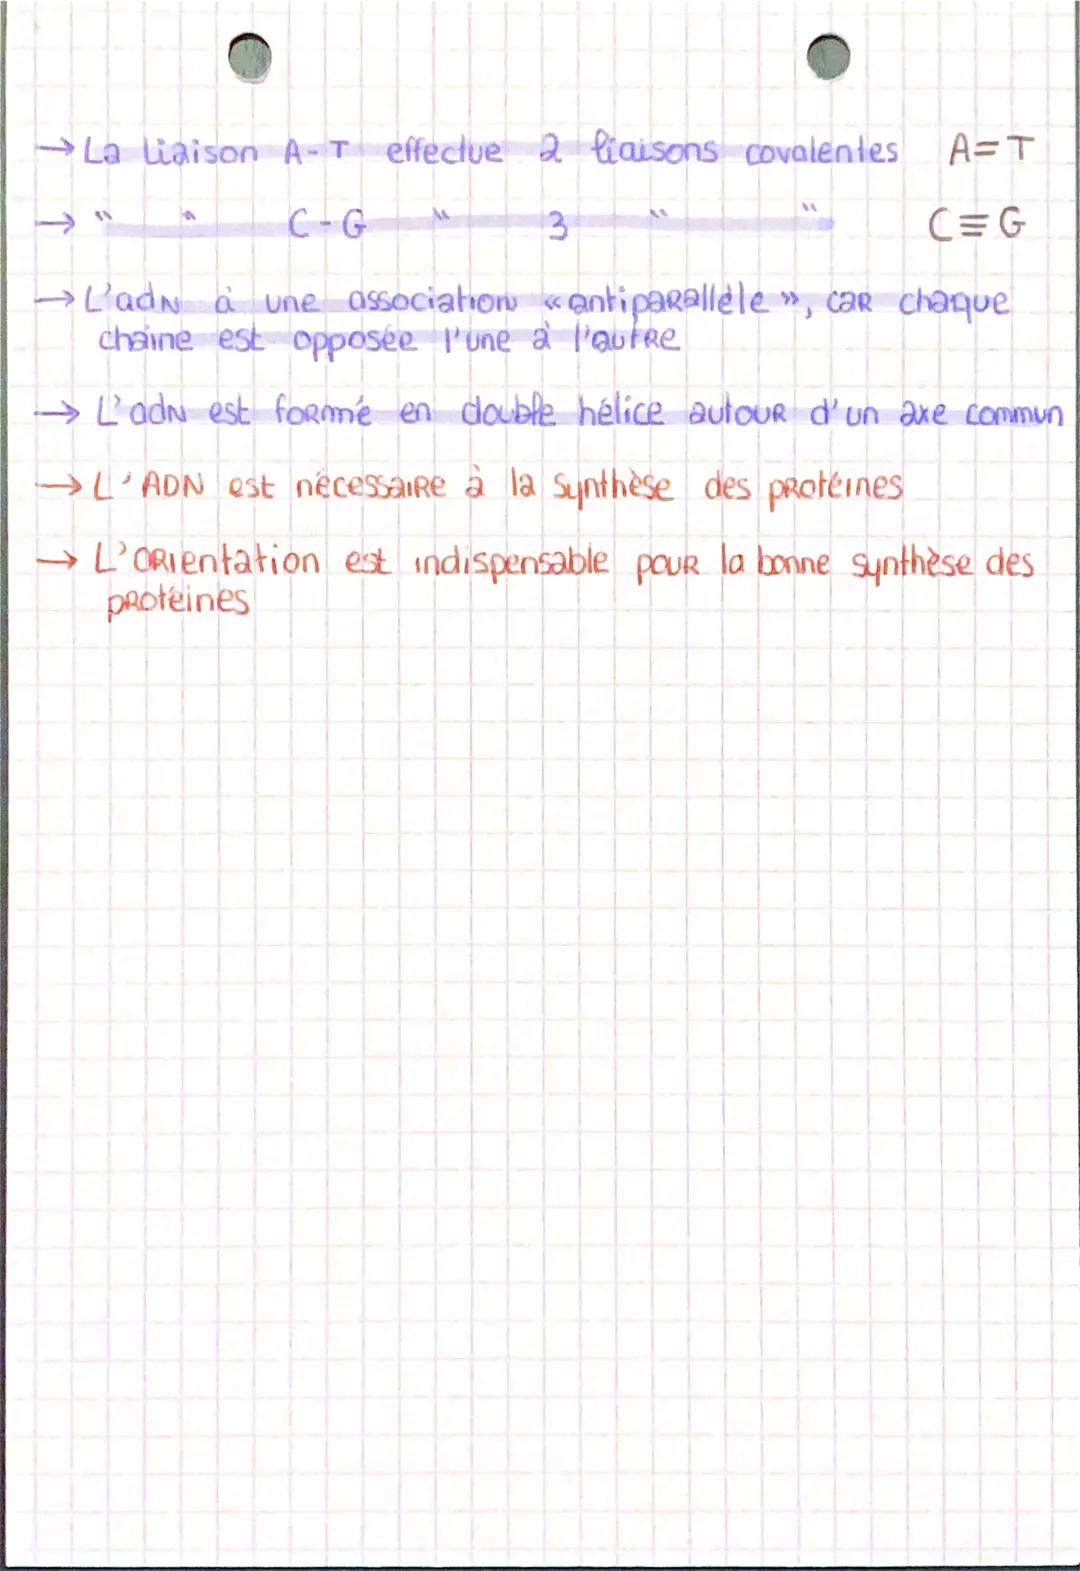 → La liaison A-T effectue 2 liaisons covalentes A=T
→ " " C-G " 3 " " C≡G
→ L'adN à une association « antiparallèle », car chaque
chaine est opposée l'une à l'autre
→ L'adN est formé en double hélice autour d'un axe commun
→ L'ADN est nécessaire à la synthèse des protéines
→ L'orientation est indispensable pour la bonne synthèse des
protéines